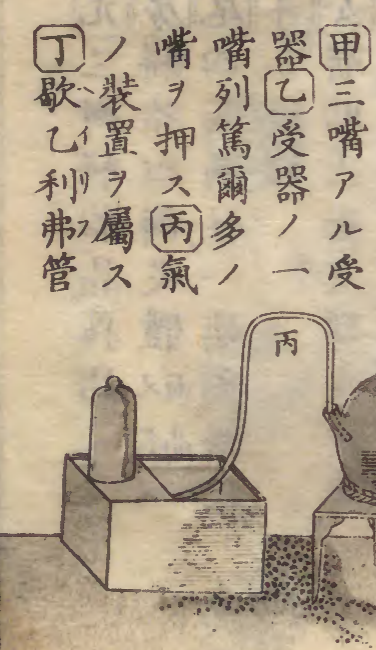 甲三嘴アル受
器乙受器ノ一
嘴列篤爾多ノ
嘴ヲ押ス丙氣
ノ裝置ヲ屬ス
丁歇乙利弗管
ヘイリフ
丙